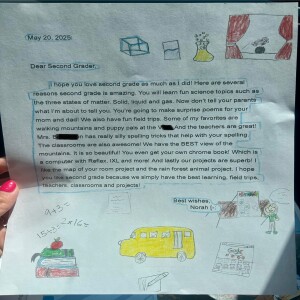 May 20, 2025
Dear Second Grader,
I hope you love second grade as much as I did! Here are several
reasons second grade is amazing. You will learn fun science topics such as
the three states of matter. Solid, liquid and gas. Now don't tell your parents
what I'm about to tell you. You're going to make surprise poems for your
mom and dad! We also have fun field trips. Some of my favorites are
walking mountains and puppy pals at the And the teachers are great!
Mrs. has really silly spelling tricks that help with your spelling
The classrooms are also awesome! We have the BEST view of the
mountains. It is so beautiful! You even get your own chrome book! Which is
a computer with Reflex, IXL and more! And lastly our projects are superb! I
like the map of your room project and the rain forest animal project. I hope
you like second grade because we simply have the best learning, field trips,
teachers, classrooms and projects!
Best wishes,
Norah